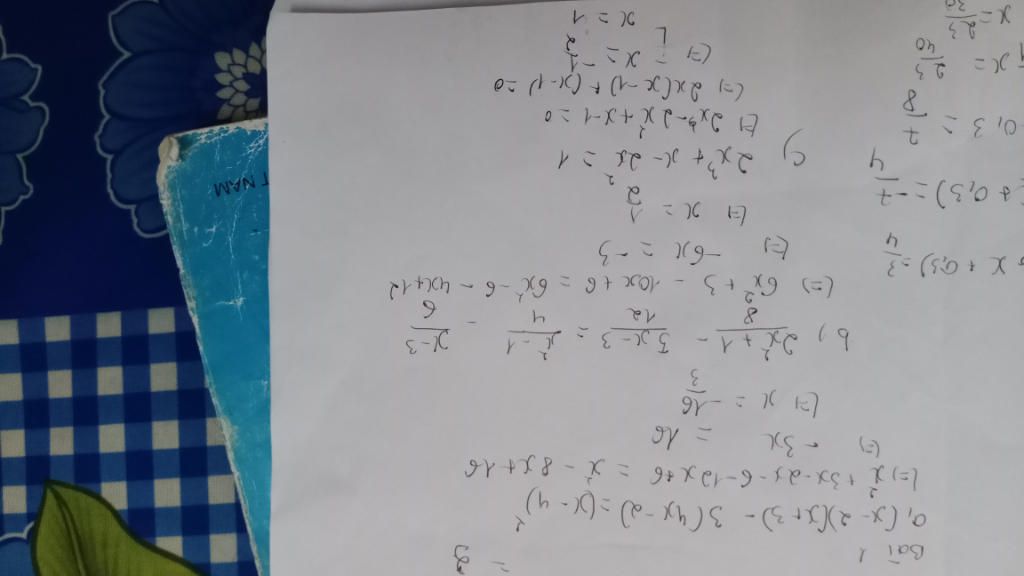 = 3
Bài 1
a, (x-2)(x+3) - 3(4x-2) = (x-4)²
(=) x² + 3x - 2x - 6 - 12x + 6 = x² - 8x + 16
(=) - 3x = 16
(=) x = -16/3
b, (2x²+1)/8 - (5x-3)/12 = (x²-1)/4 - (x-3)/6
(=) 6x² + 3 - 10x + 6 = 6x² - 6 - 4x + 12
(=) -6x = -3
(=) x = 1/2
c) 2x³ + x - 2x² = 1
(=) 2x³ - 2x² + x - 1 = 0
(=) 2x(x-1) + (x-1) = 0
(=) x = -1/2
x = 1
x + 0,3) = 3/4
+ 0,3) = -7/4
0,3 = 7/8
x = 23/40
x = 23/30
T NAM